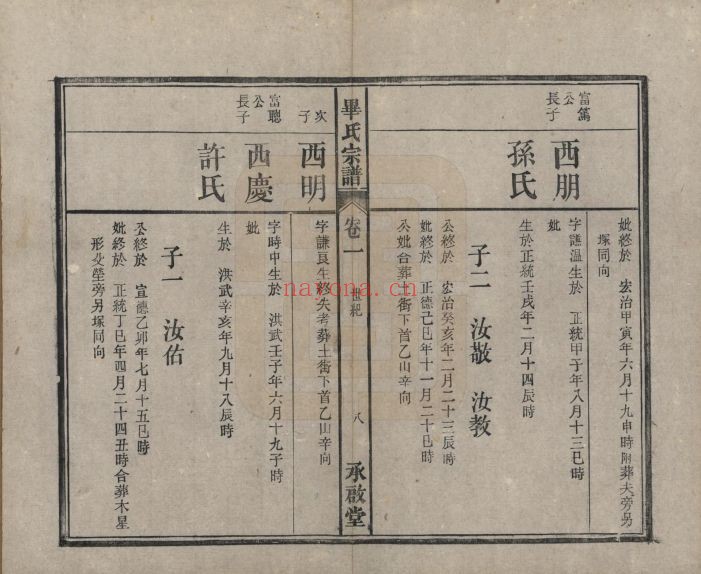 妣終於　宏治甲寅年六月十九申時附葬夫旁另
塚同向
富篤
公
長子
西朋
孫氏
字謙溫生於　正統甲子年八月十三巳時
妣
生於正統壬戌年二月十四辰時
子二　汝敬　汝教
公終於　宏治癸亥年二月二十三辰時
妣終於　正德己巳年十一月二十巳時
公妣合葬土街下首乙山辛向
畢氏宗譜
卷一　世紀　八
承啟堂
次
子
西明
字謙良生終失考葬土街下首乙山辛向
富聰
公
長子
西慶
許氏
字時中生於　洪武壬子年六月十九子時
妣
生於　洪武辛亥年九月十八辰時
子一　汝佑
公終於　宣德乙卯年七月十五巳時
妣終於　正統丁巳年四月二十四丑時合葬木星
形父塋旁另塚同向
nayona.cn